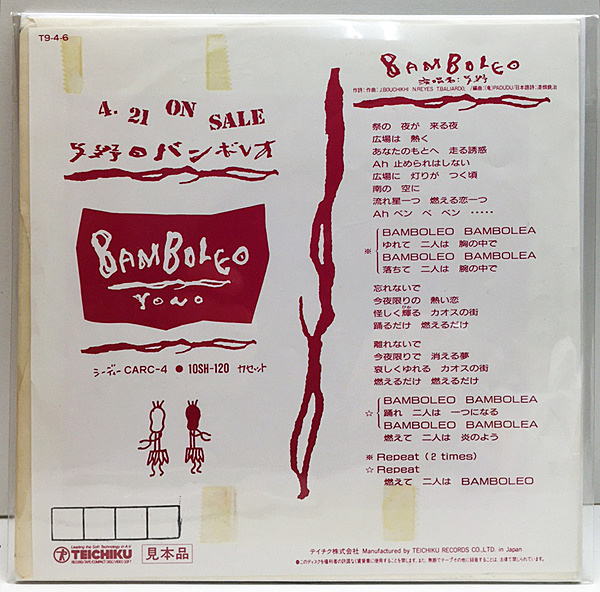 T9-4-6
4. 21 ON SALE
与野のバンボレオ
BAMBOLEO
YONO
シーディーCARC-4 ● 10SH-120 カセット
BAMBOLEO
作詩/作曲:J.BOUCHIKHI N.REYES T.BALIARDO, /編曲:(竜)PADUDU/日本語詩:
祭の 夜が 来る夜
広場は 熱く
あなたのもとへ 走る誘惑
Ah 止められはしない
広場に 灯りが つく頃
南の 空に
流れ星一つ 燃える恋一つ
Ah ベン ベ ベン ‥‥‥
※ BAMBOLEO BAMBOLEA
ゆれて 二人は 胸の中で
BAMBOLEO BAMBOLEA
落ちて 二人は 腕の中で
忘れないで
今夜限りの 熱い恋
怪しく輝る カオスの街
踊るだけ 燃えるだけ
離れないで
今夜限りで 消える夢
哀しくゆれる カオスの街
燃えるだけ 燃えるだけ
☆ BAMBOLEO BAMBOLEA
踊れ 二人は 一つになる
BAMBOLEO BAMBOLEA
燃えて 二人は 炎のよう
※ Repeat (2 times)
☆ Repeat
燃えて 二人は BAMBOLEO
Leading the Soft Technology in A.V
TEICHIKU
RECORD/TAPE/COMPACT DISC/VIDEO SOFT
見本品
テイチク株式会社 Manufactured by TEICHIKU RECORDS CO.,LTD. in Japan